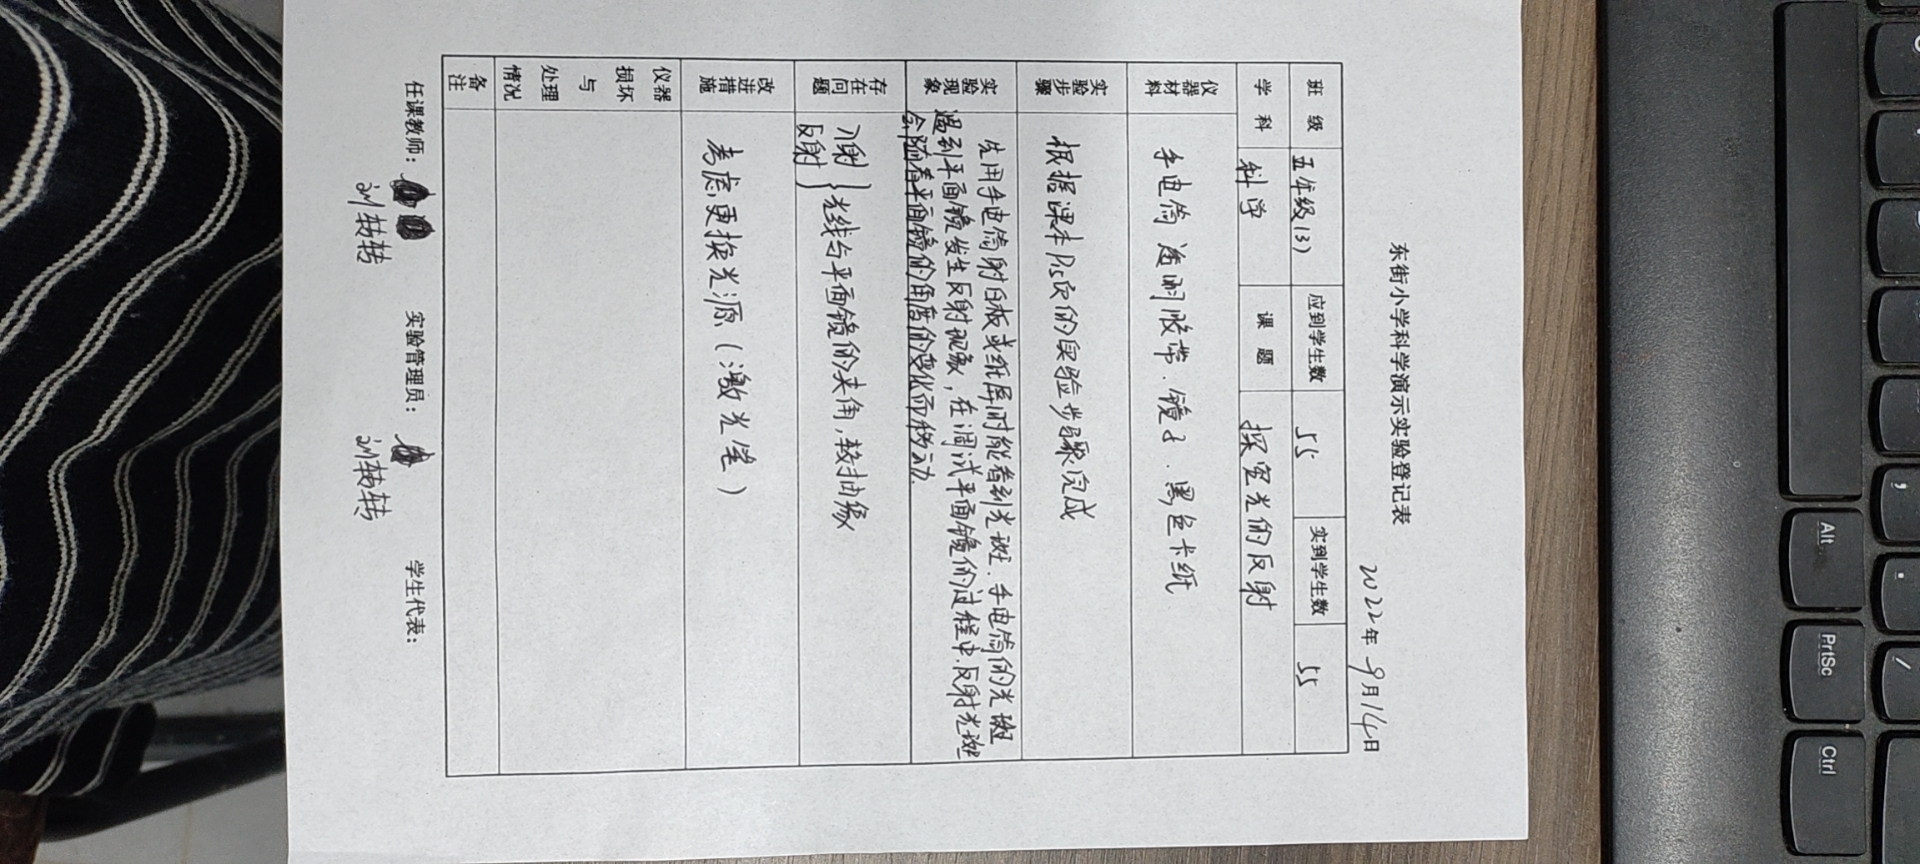 东街小学科学演示实验登记表
2022年 9月14日
班 级 五年级(3) 应到学生数 55 实到学生数 55
学 科 科学 课 题 探究光的反射
仪器材料 手电筒 透明胶带.镜子.黑色卡纸
实验步骤 根据课本P15页的实验步骤完成
实验现象 先用手电筒射白板或纸屏时能看到光斑.手电筒的光斑
遇到平面镜发生反射现象,在调试平面镜的过程中.反射光斑
会随着平面镜的角度的变化而移动.
存在问题 入射
反射 } 光线与平面镜的夹角,较抽象
改进措施 考虑更换光源(激光笔)
仪器损坏与处理情况
备注
任课教师: 实验管理员: 学生代表:
刘转转 刘转转
Alt
PrtSc
Ctrl
/